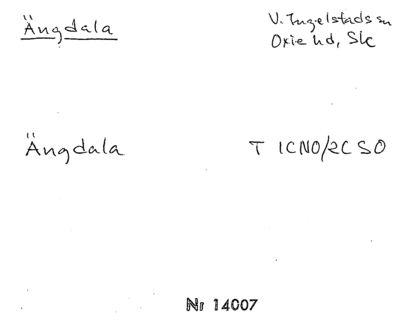 Ängdala
V. Ingelstads sn
Oxie hd, Sk
Ängdala
T 1CNO/2CSO
Nr 14007